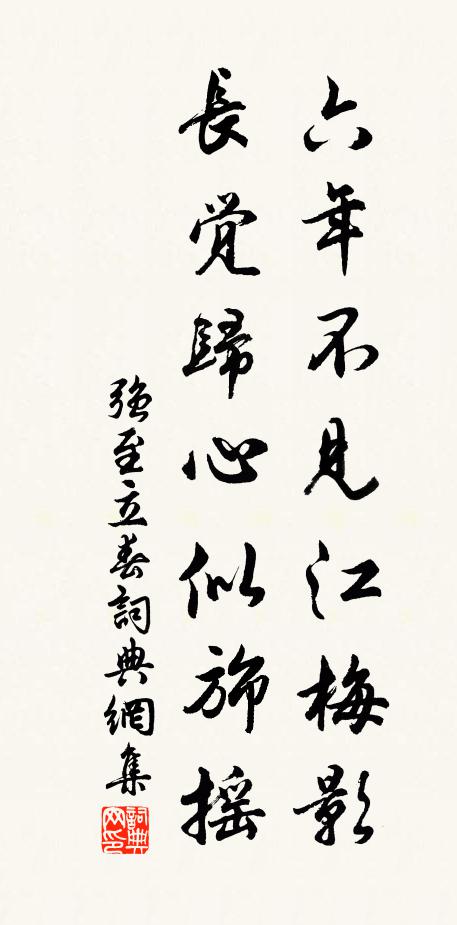 六年不見江梅影
長覺歸心似旆摇
強至立春詞典網集
詞典网印